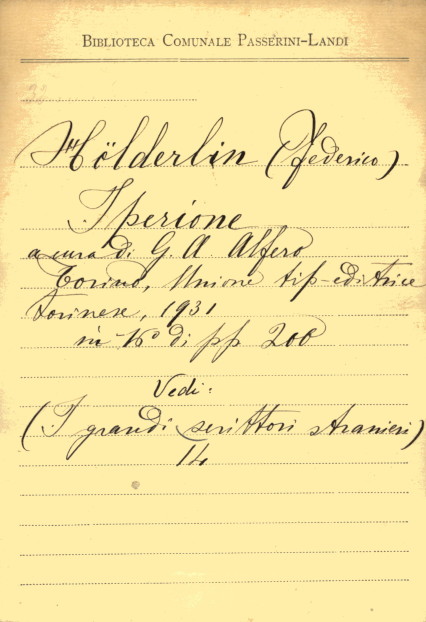 BIBLIOTECA COMUNALE PASSERINI-LANDI
Hölderlin (Federico)
Iperione
a cura di G. A. Alfero
Torino, Unione tip-editrice
torinese, 1931
in 16° di pp 200
Vedi:
(I grandi scrittori stranieri)
14